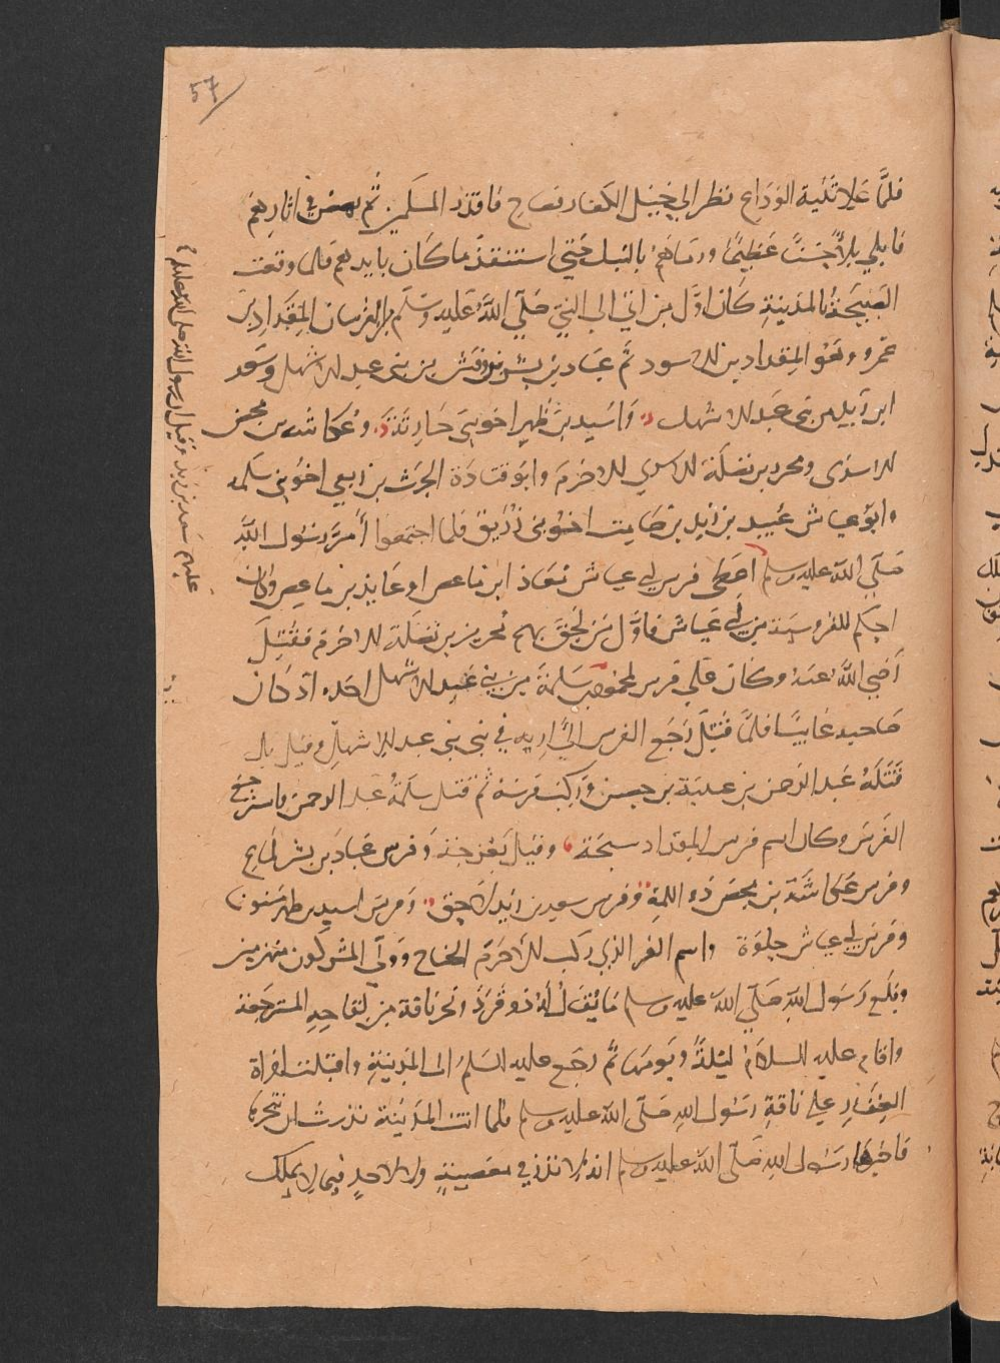 57
فلمَّا علا ثنية الوداع نظر الى خيل الكفار فصاح فانذر المسلمين ثم نهض في اثارهم
فابلي بلاً حسنًا عظيمًا ورماهم بالنبل حتى استنقذ ما كان بايديهم فلما وقعت
الصيحة بالمدينة كان اول من اتي الى النبي صلى الله عليه وسلم من الفرسان المقداد بن
عمرو وهو المقداد بن الاسود ثم عباد بن بشر بن وقش من بني عبد الاشهل وسعد
ابن زيد من بني عبد الاشهل واسيد بن ظهير اخو بني حارثة وعكاشه بن محصن
الاسدى ومحرز بن نضلة الاسدي الاخرم وابو قتادة الحرث بن ربعي اخو بني سلمه
وابو عياش عبيد بن زيد بن صامت اخو بني زريق فلما اجتمعوا أمر رسول الله
صلى الله عليه وسلم اعطى فرس ابي عياش معاذ ابن ماعص او عايذ بن ماعص وكان
احكم للفروسية من ابي عياش فاول من لحق بهم محرز بن نضلة الاخرم فقتل
رضي الله عنه وكان على فرس لمحمود بن مسلمة من بني عبد الاشهل اخذه اذ كان
صاحبه غايبًا فلمَّا قتل رجع الفرس الى اريه في بني عبد الاشهل وقيل بل
قتله عبد الرحمن بن عيينة بن حصن وركب فرسه ثم قتل سلمة عبد الرحمن واسترجع
الفرس وكان اسم فرس المقداد سبحة وقيل بعزجة وفرس عباد بن بشر لماع
وفرس عكاشة بن محصن ذو اللمة وفرس سعد بن زيد لاحق وفرس اسيد بن ظهير مسنون
وفرس ابي عياش جلوة واسم الفرس الذي ركب الاخرم الجناح وولى المشركون منهزمين
وبلغ رسول الله صلى الله عليه وسلم ما يقال له ذو قرد ونحر ناقة من لقاحه المسترجعة
واقام عليه السلام ليلة ويوما ثم رجع عليه السلم الى المدينة واقبلت امراة
الغفاري على ناقة رسول الله صلى الله عليه وسلم فلما اتت المدينة نذرت ان تنحرها
فاخبرها رسول الله صلى الله عليه وسلم انه لا نذر في معصية ولا لاحد فيما لا يملك
عليهم سعد بن زيد وقيل ان رسول الله صلى الله عليه وسلم